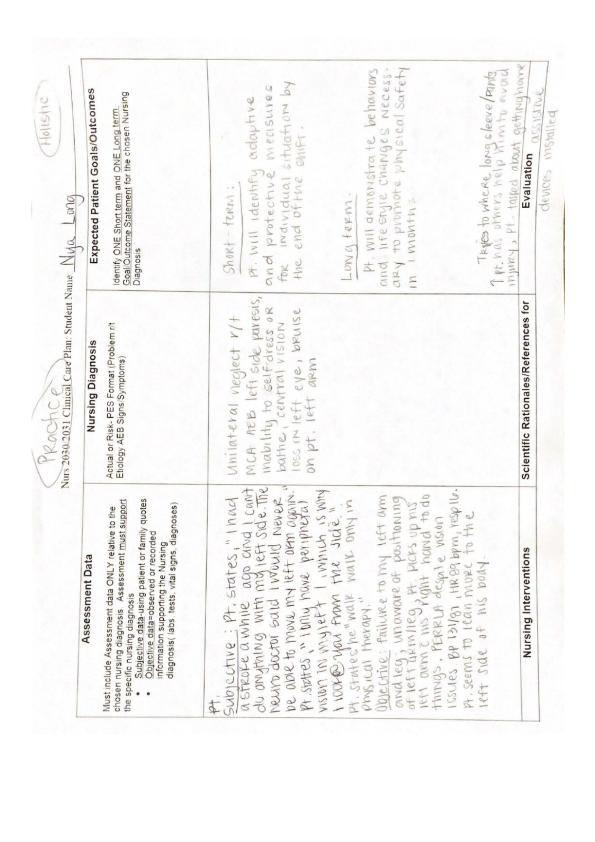 Practice
Holistic
Nurs 2030-2031 Clinical Care Plan: Student Name Nya Long
Assessment Data
Must include Assessment data ONLY relative to the
chosen nursing diagnosis Assessment must support
the specific nursing diagnosis
• Subjective data-using patient or family quotes
• Objective data=observed or recorded
information supporting the Nursing
diagnosis( labs, tests, vital signs, diagnoses)
Nursing Diagnosis
Actual or Risk- PES Format (Problem r/t
Etiology AEB Signs/Symptoms)
Expected Patient Goals/Outcomes
Identify ONE Short term and ONE Long term
Goal/Outcome Statement for the chosen Nursing
Diagnosis
Pt.
Subjective: Pt. states, "I had
a stroke a while ago and I can't
do anything with my left side. The
neuro doctor said I would never
be able to move my left arm again."
Pt. states "I only have peripheral
vision in my left I which is why
I look @ you from the side."
Pt. states he "walk walk only in
physical therapy."
Objective: Failure to my left arm
and leg, unaware of positioning
of left arm/leg, Pt. picks up his
left arm c his right hand to do
things. PERRLA despite vision
issues BP 131/81, HR 89 bpm, resp 16.
Pt. seems to lean more to the
left side of his body.
Unilateral neglect r/t
MCA AEB left side paresis,
inability to self-dress or
bathe, central vision
loss in left eye, bruise
on pt. left arm
Short term:
Pt. will identify adaptive
and protective measures
for individual situation by
the end of the shift.
Long term:
Pt. will demonstrate behaviors
and lifestyle changes necess-
ary to promote physical safety
in 1 months
Tries to where long sleeve/pants
↑ pt. has others help him to avoid
injury, Pt. talked about getting home
assistive
devices installed
Nursing Interventions
Scientific Rationales/References for
Evaluation